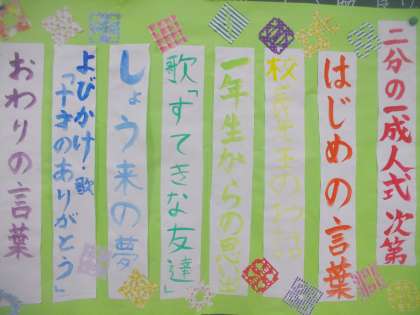 二分の一成人式 次第
はじめの言葉
校長先生の
一年生からの思い出
歌「すてきな友達」
しょう来の夢
よびかけ・歌
「十才のありがとう」
おわりの言葉